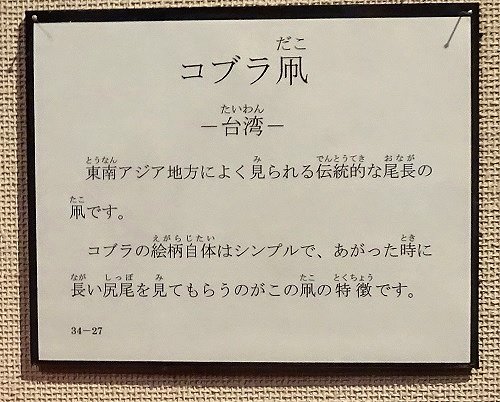 だこ
コブラ凧
たいわん
－台湾－
とうなん み でんとうてき おなが
東南アジア地方によく見られる伝統的な尾長の
たこ
凧です。
えがらじたい とき
コブラの絵柄自体はシンプルで、あがった時に
なが しっぽ み たこ とくちょう
長い尻尾を見てもらうのがこの凧の特徴です。
34－27